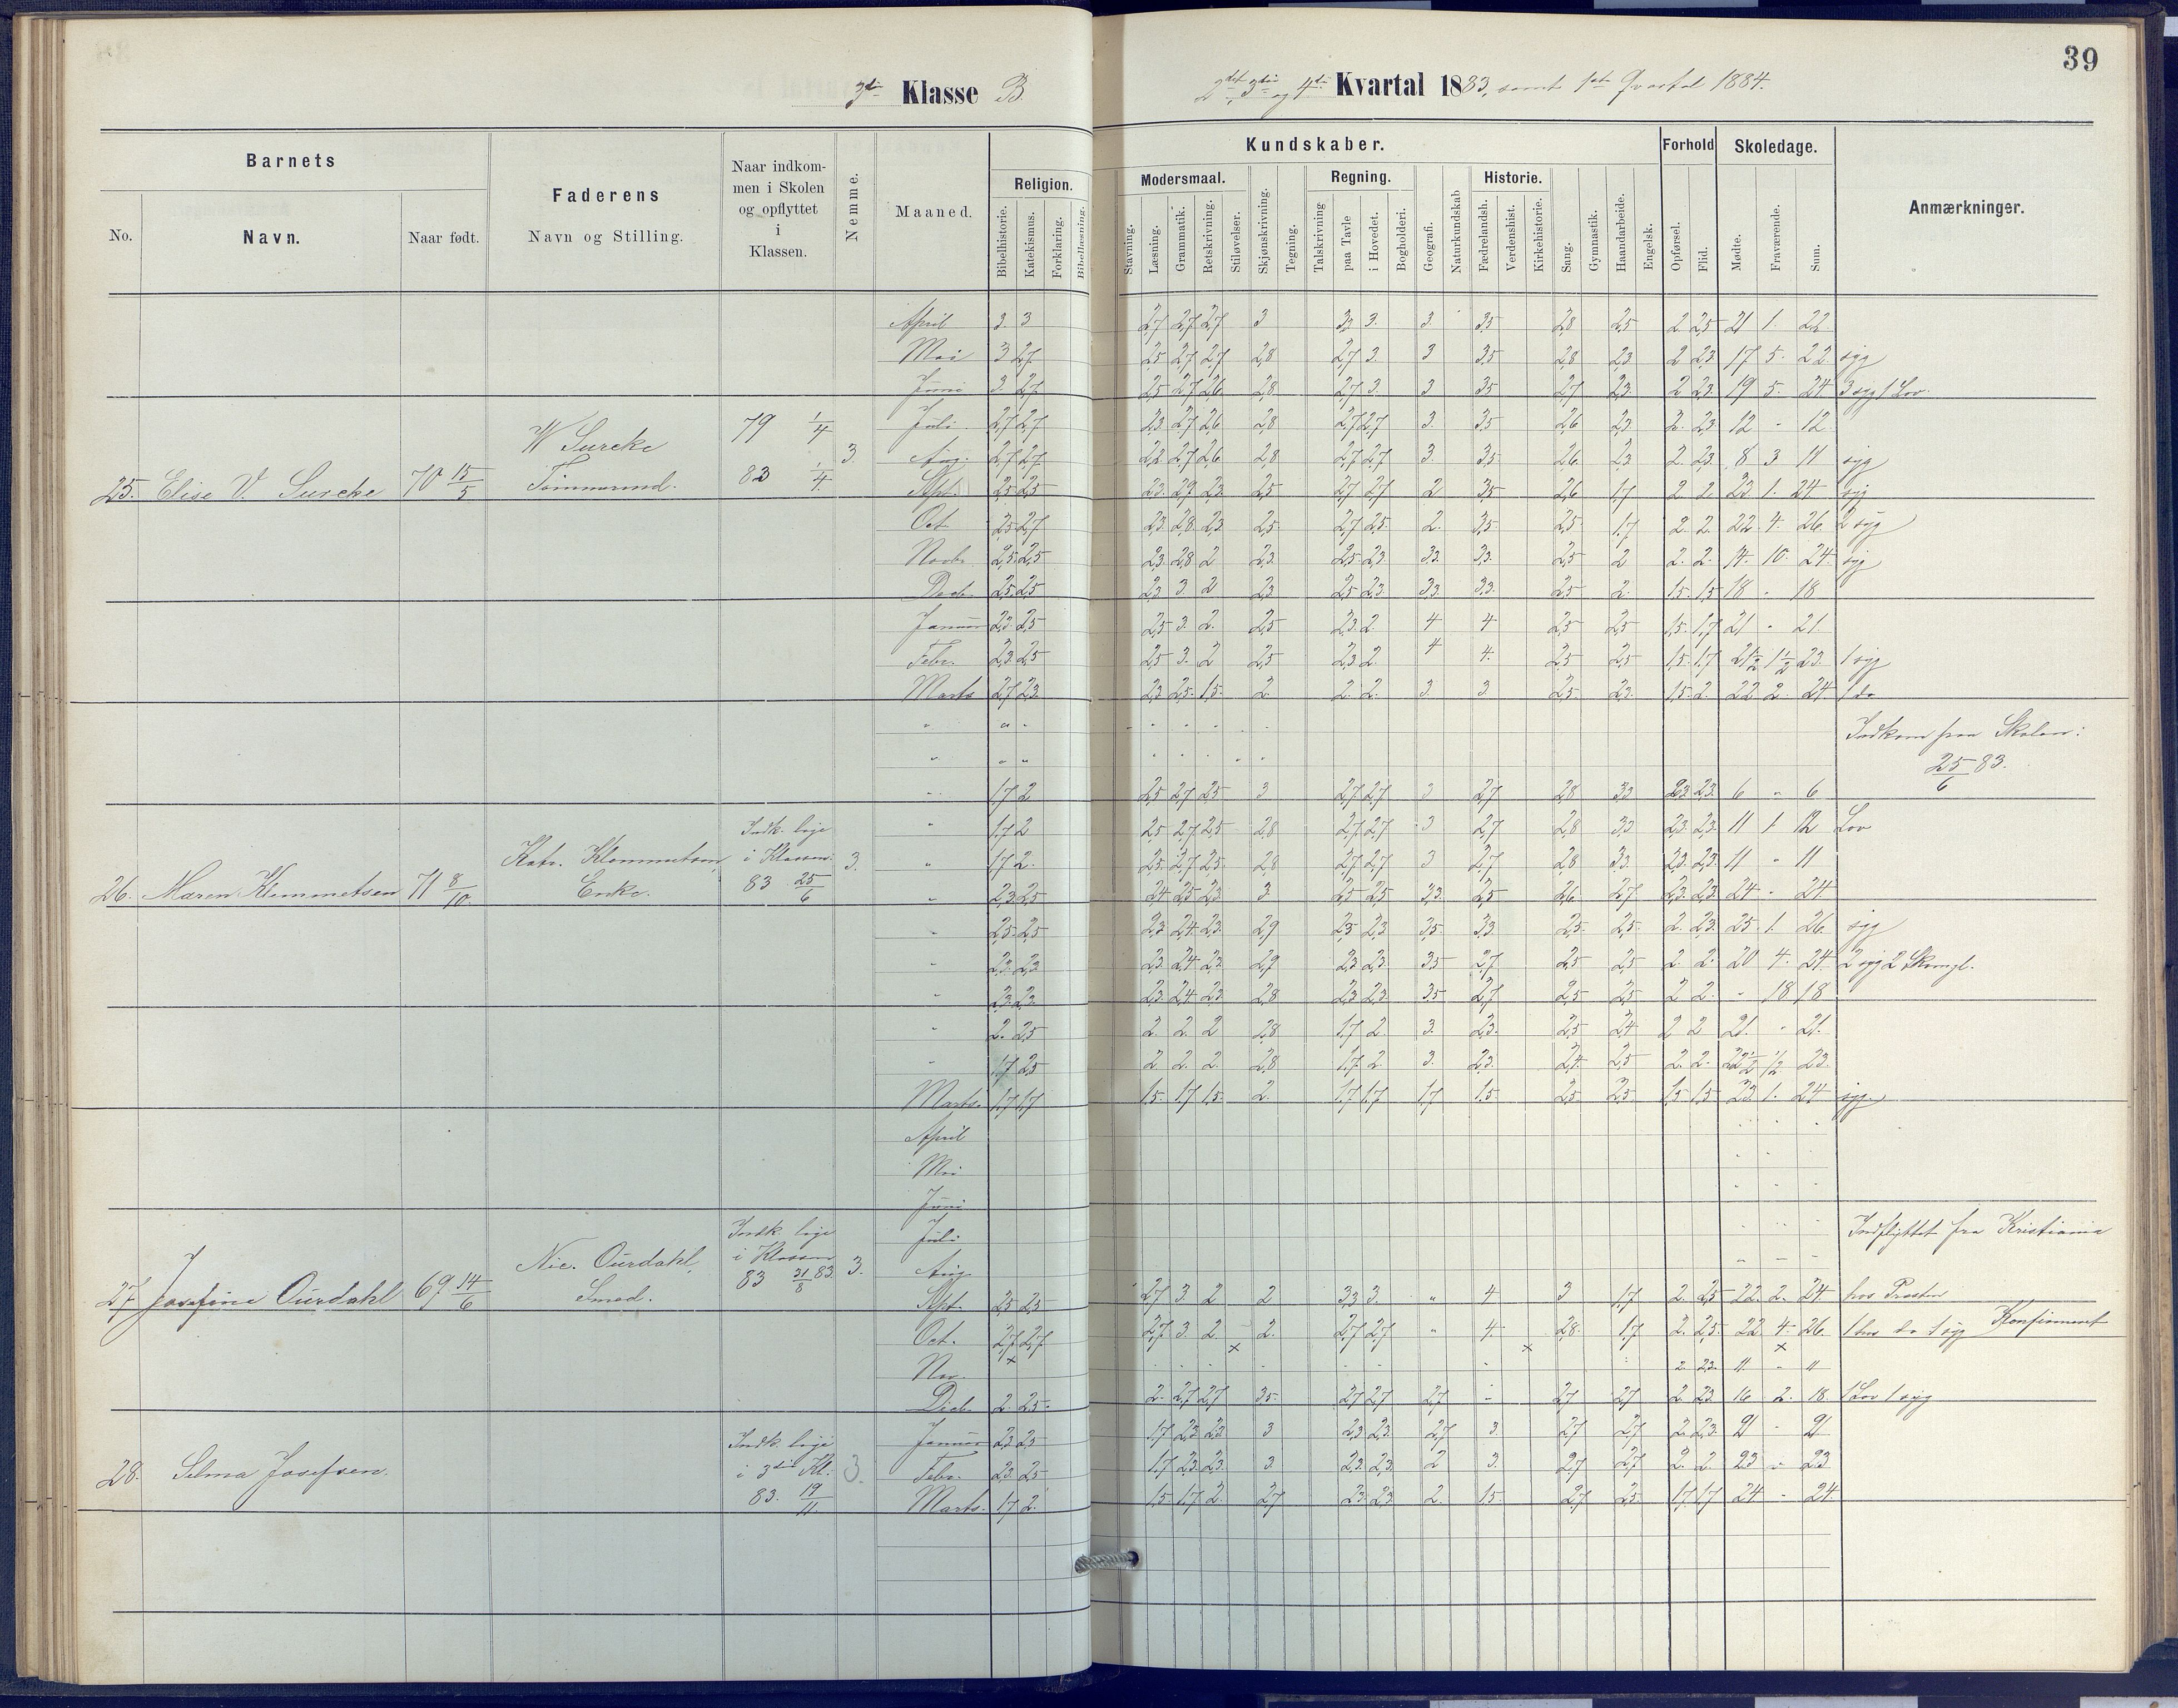 39
3die Klasse B.
2det 3die og 4de Kvartal 1883, samt 1ste Qvartal 1884.
Barnets
No.
Navn.
Naar født.
Faderens
Navn og Stilling.
Naar indkom-
men i Skolen
og opflyttet
i
Klassen.
Nemme.
Maaned.
Religion.
Bibelhistorie.
Katekismus.
Forklaring.
Bibellæsning.
Kundskaber.
Modersmaal.
Stavning.
Læsning.
Grammatik.
Retskrivning.
Stiløvelser.
Skjønskrivning.
Tegning.
Regning.
Talskrivning
paa Tavle
i Hovedet.
Bogholderi.
Geografi.
Naturkundskab
Historie.
Fædrelandsh.
Verdenshist.
Kirkehistorie.
Sang.
Gymnastik.
Haandarbeide.
Engelsk.
Forhold
Opførsel.
Flid.
Skoledage.
Mødte.
Fraværende.
Sum.
Anmærkninger.
25. Elise V. Surcke 70 15/5 W Surcke Tømmermd. 79 1/4 83 1/4 3
April 3. 3 2,7 2,7 2,7 3 3,3 3. 3. 3,5 2,8 2,5 2 2,5 21 1. 22
Mai 3 2,7 2,5 2,7 2,7 2,8 2,7 3. 3 3,5 2,8 2,3 2 2,3 17 5. 22 syg
Juni 3. 2,7 2,5 2,7 2,6 2,8 2,7 3. 3 3,5 2,7 2,3 2 2,3 19 5. 24 3 syg 1 Lov.
Juli 2,7 2,7 2,3 2,7 2,6 2,8 2,7 2,7 3. 3,5 2,6 2,3 2. 2,3 12 " 12
Aug. 2,7 2,7 2,2 2,7 2,6 2,8 2,7 2,7 3. 3,5 2,6 2,3 2. 2,3 8 3 11 syg
Spt. 2,5 2,5 2,3 2,9 2,3 2,5 2,7 2,7 2 3,5 2,6 1,7 2 2. 23. 1. 24 syg
Oct 2,5 2,7 2,3 2,8 2,3 2,5 2,7 2,5 2. 3,5 2,5 1,7 2. 2. 22. 4. 26 2 syg
Novb. 2,5 2,5 2,3 2,8 2 2,3 2,5 2,3 3,3 3,3 2,5 2 2. 2. 14. 10. 24 syg
Decb. 2,5 2,5 2,3 3. 2 2,3 2,5 2,3 3,3 3,3 2,5 2. 1,5 1,5 18 " 18
Januar 2,3 2,5 2,5 3. 2. 2,5 2,3 2. 4 4 2,5 2,5 1,5 1,7 21 " 21
Febr. 2,3 2,5 2,5 3. 2 2,5 2,3 2. 4 4. 2,5 2,5 1,5 1,7 21 1/2 1 1/2 23. 1 syg
Marts 2,7 2,3 2,3 2,5 1,5 2. 2. 2. 3. 3 2,5 2,3 1,5 2. 22 2. 24 1 do
Indkom paa Skolen:
25/6 83.
26. Maren Klemmetsen 71 8/10. Kath. Klemmetsen, Enke. Indk. lige i Klassen 83 25/6 3.
" 1,7 2 2,5 2,7 2,5 3 2,7 2,7 3 2,7 2,8 3,3 2,3 2,3 6 " 6
" 1,7 2 2,5 2,7 2,5 2,8 2,7 2,7 3 2,7 2,8 3,3 2,3 2,3 11 1. 12 Lov
" 1,7 2. 2,5 2,7 2,5 2,8 2,7 2,7 3 2,7 2,8 3,3 2,3 2,3 11 " 11
" 2,3 2,5 2,4 2,5 2,3 3. 2,5 2,5 3,3 2,5 2,6 2,7 2,3 2,3 24 " 24
" 2,5 2,5 2,3 2,4 2,3 2,9 2,5 2,3 3,5 3,3 2,5 2,5 2. 2,3 25. 1. 26 syg
" 2,3 2,3 2,3 2,4 2,3 2,9 2,3 2,3 3,5 2,7 2,5 2,5 2 2. 20 4. 24
" 2,3 2,3 2,3 2,4 2,3 2,8 2,3 2,3 3,5 2,7 2,5 2,5 2 2. " 18 18
" 2. 2,5 2. 2. 2 2,8 1,7 2. 3. 2,3 2,5 2,4 2 2 21. " 21.
" 1,7 2,5 2 2. 2. 2,8 1,7 2 3. 2,3 2,4 2,5 2. 2. 22 1/2 1/2 23.
Marts. 1,7 1,7 1,5 1,7 1,5 2. 1,7 1,7 1,7 1,5 2,5 2,5 1,5 1,5 23 1. 24 syg.
27. Josefine Ourdahl 69 14/6 Nic. Ourdahl, Smed. Indk. lige i Klassen 83 31/8 83. 3.
April
Mai
Juni
Juli Indflyttet fra Kristiania
Aug.
Spt. 2,5 2,5 2,7 3 2 2 3,3 3. " 4 3 1,7 2. 2,5 22. 2. 24 hos Presten
Oct. 2,7 2,7 2,7 3. 2. 2. 2,7 2,7 " 4. 2,8 1,7 2. 2,5 22 4. 26 1 hos do 1 syg Konfirmeret
Nov. × × × × 2. 2,3 11. " 11
28. Selma Josefsen. Indk. lige i 3die Kl. 83. 19/11. 3.
Decb. 2. 2,5 2. 2,7 2,7 3,5 2,7 2,7 2,7 " 2,7 2,7 2 2,3 16 2. 18. 1 Lov 1 syg
Januar 2,3 2,5 1,7 2,3 2,3 3 2,3 2,3 2,7 3. 2,7 2,7 2. 2,3 21 " 21
Febr. 2,3 2,5 1,7 2,3 2,3 3. 2,3 2,3 2 3. 2,7 2,7 2. 2. 23 " 23
Marts. 1,7 2. 1,5 1,7 2. 2,7 2,3 2,3 2. 1,5 2,7 2,5 1,7 1,7 24 " 24